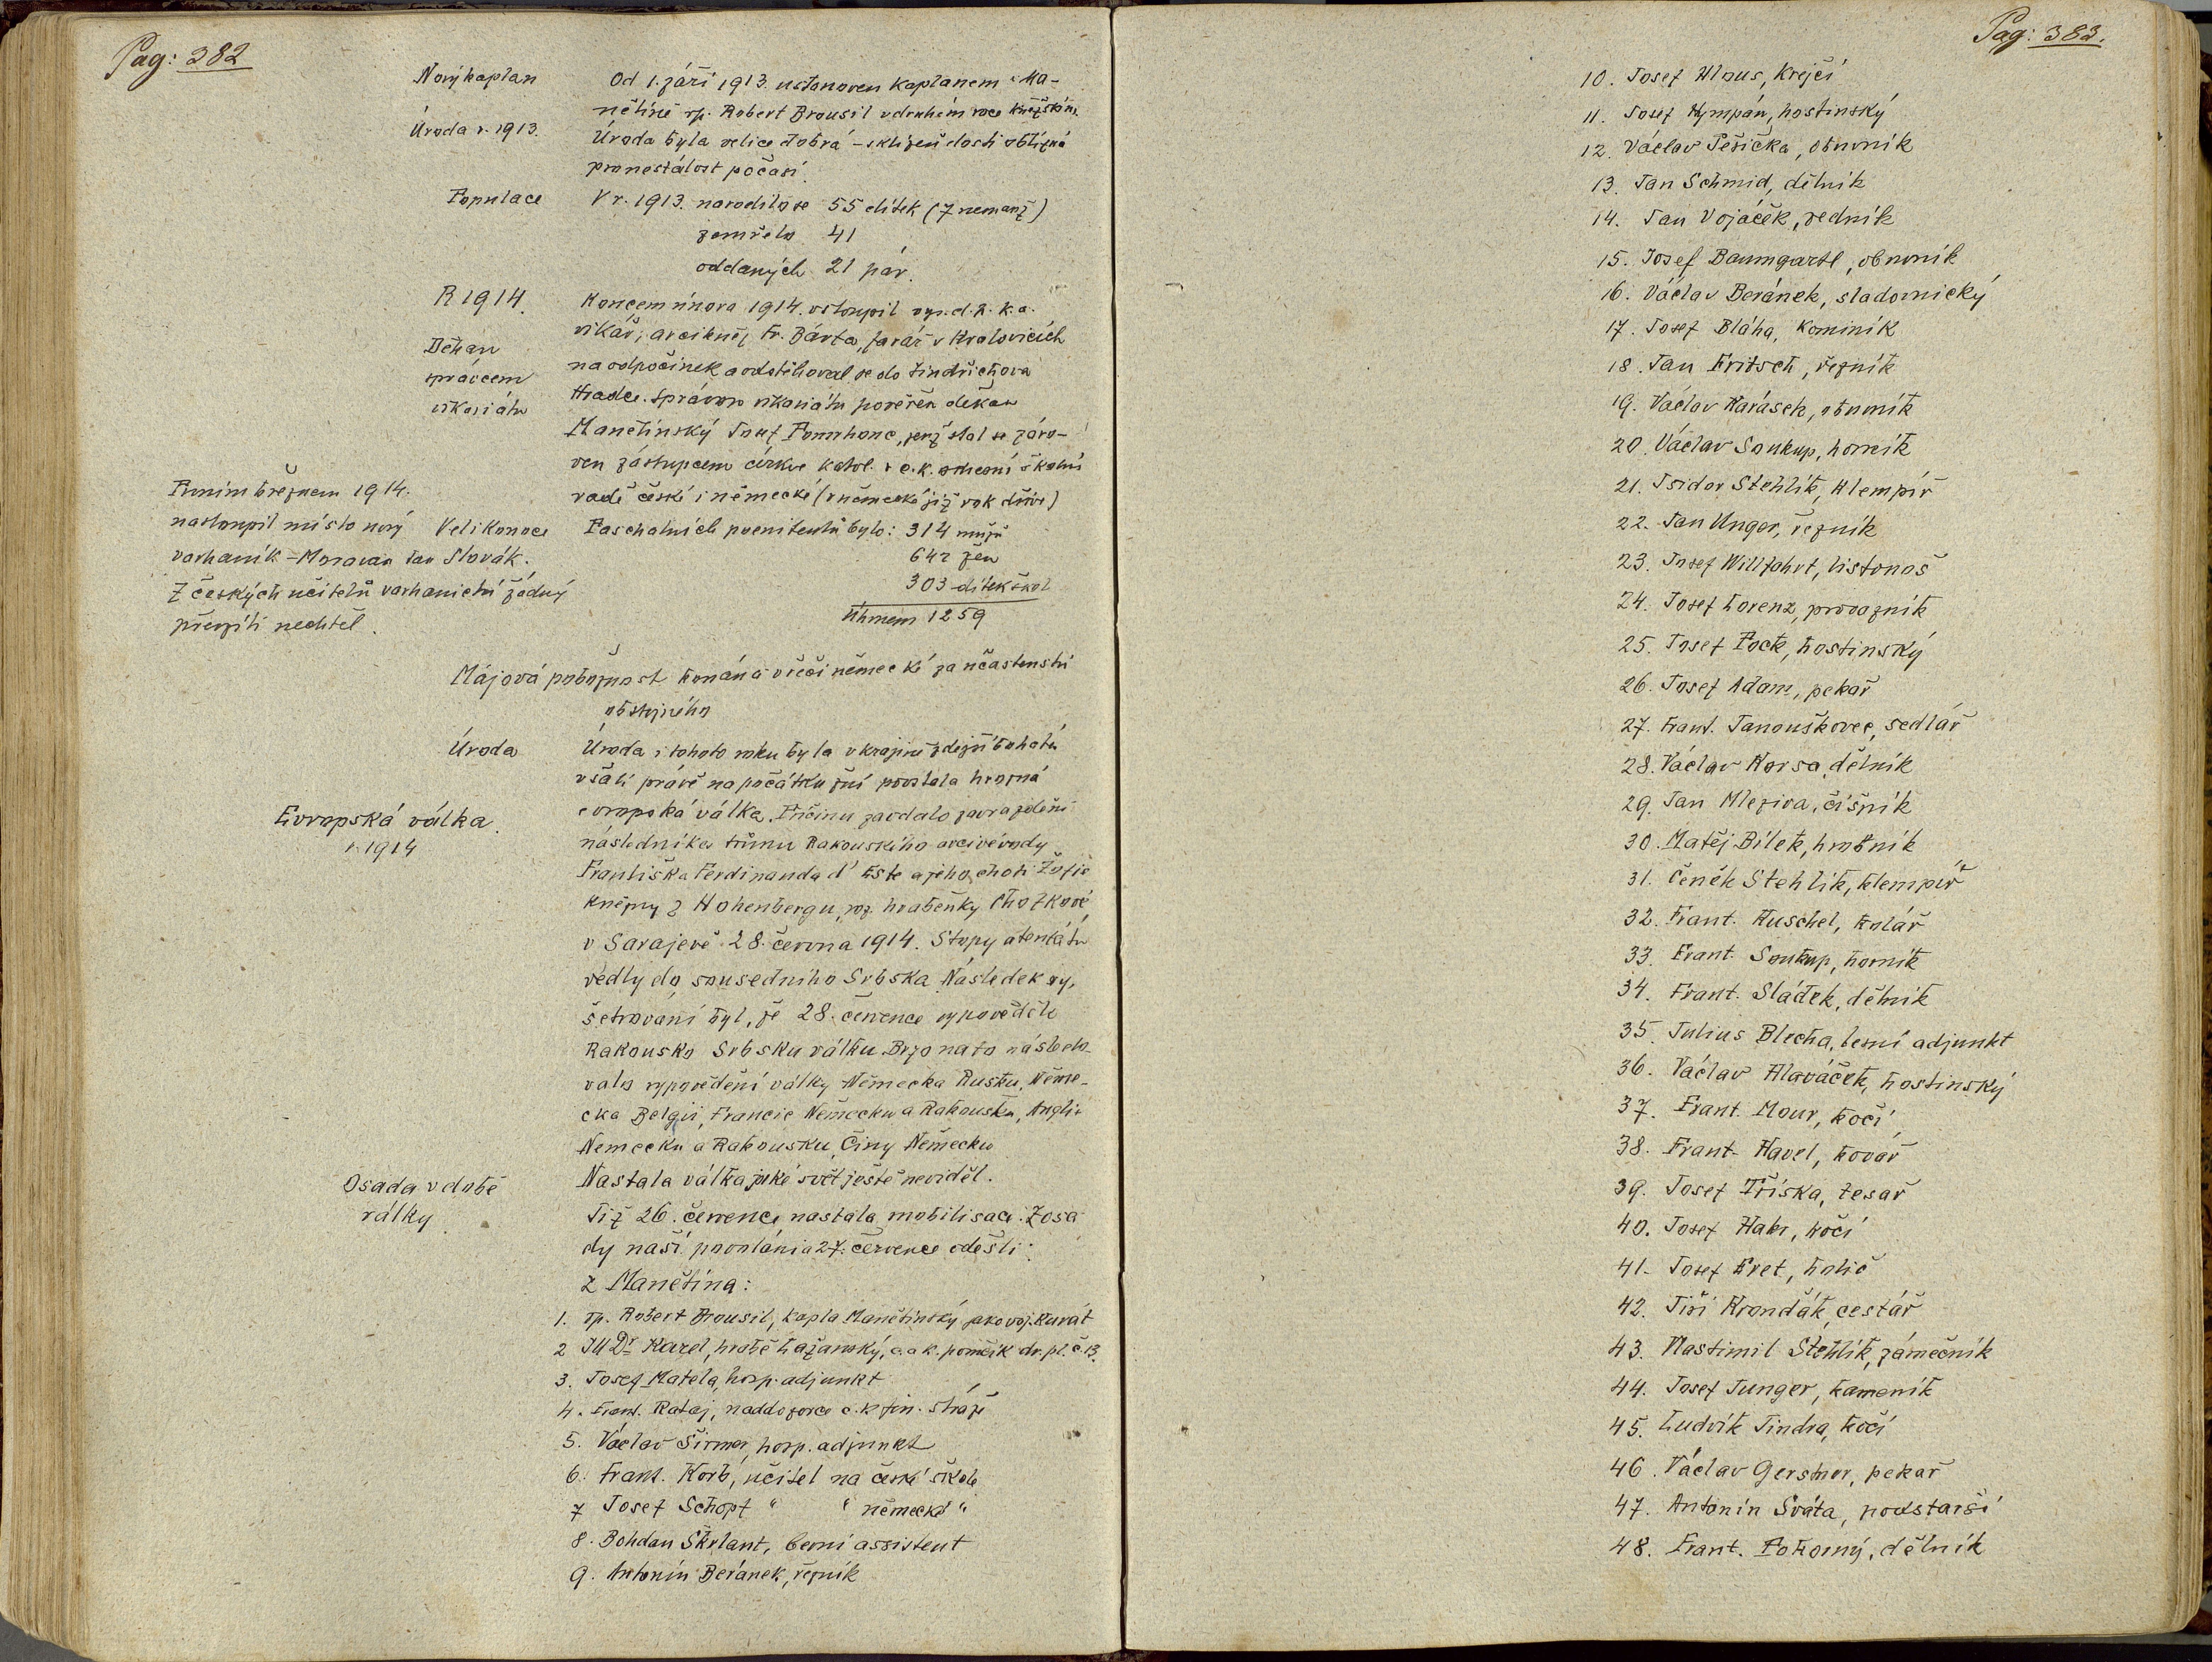 Pag: 382
Nový kaplan
Od 1. září 1913. ustanoven kaplanem v Ma-
nětíně rp. Robert Brousil v druhém roce kněžském.
Úroda r. 1913.
Úroda byla velice dobrá – sklizeň dosti obtížná
pro nestálost počasí.
Populace
V r. 1913. narodilo se 55 dítek (7 nemanž)
zemřelo 41
oddaných 21 pár.
R 1914.
Koncem února 1914. vstoupil vys. d. p. k. a.
vikář, arcikněz Fr. Bárta, farář v Kralovicích
Děkan
správcem
vikariátu
na odpočinek a odstěhoval se do Jindřichova
Hradce. Správou vikariátu pověřen děkan
Manětínský Josef Pomrhanc, jenž stal se záro-
ven zástupcem církve katol. v c. k. okresní školní
radě české i německé (v německé již rok dříve)
Prvním březnem 1914.
nastoupil místo nový
varhaník – Moravan Jan Slovák.
Z českých učitelů varhanictví žádný
převzíti nechtěl.
Velikonoce
Paschalních poenitentů bylo: 314 mužů
642 žen
303 dítek škol
Úhrnem 1259
Májová pobožnost konána v řeči německé za účastenství
obstojného
Úroda
Úroda i tohoto roku byla v krajině zdejší bohatá
však právě na počátku žní povstala hrozná
Evropská válka.
r. 1914
evropská válka. Příčinu zavdalo zavraždění
následníka trůnu Rakouského arcivévody
Františka Ferdinanda d' Este a jeho choti Žofie
kněžny z Hohenbergu, roz. hraběnky Chotkové
v Sarajevě 28. června 1914. Stopy atentátu
vedly do sousedního Srbska. Následek vy-
šetrování byl, že 28. července vypovědělo
Rakousko Srbsku válku. Brzo na to následo-
valo vypovědění války Německa Rusku, Něme-
cka Belgii, Francie Německu a Rakousku, Anglie
Nemecku a Rakousku, Číny Německu
Nastala válka jaké svět ještě neviděl.
Osada v době
války.
Již 26. července nastala mobilisace. Z osa
dy naší povoláni a 27. července odešli:
z Manětína:
1. rp. Robert Brousil, kapla Manětínský jako voj. kurát
2 JUDr Karel, hrabě Lažanský, c. a k. poručík dr. pl. č. 13.
3. Josef Matela, hosp. adjunkt
4. Frant. Rataj, naddozorce c. k. fin. stráže
5. Václav Širmer, hosp. adjunkt
6. Frant. Korb, učitel na české škole
7 Josef Schopf " " německé "
8. Bohdan Škrlant, berní assistent
9. Antonín Beránek, řezník
Pag: 383.
10. Josef Klaus, krejčí
11. Josef Kympán, hostinský
12. Václav Pěšička, obuvník
13. Jan Schmid, dělník
14. Jan Vojáček, zedník
15. Josef Baumgartl, obuvník
16. Václav Beránek, sladovnický
17. Josef Bláha, kominík
18. Jan Fritsch, řezník
19. Václav Karásek, obuvník
20. Václav Soukup, horník
21. Isidor Stehlík, klempíř
22. Jan Unger, řezník
23. Josef Willfahrt, listonoš
24. Josef Lorenz, provazník
25. Josef Pock, hostinský
26. Josef Adam, pekař
27. Frant. Janouškovec, sedlář
28. Václav Korsa, dělník
29. Jan Mleziva, číšník
30. Matěj Bílek, hrobník
31. Čeněk Stehlík, klempíř
32. Frant. Kuschel, kolář
33. Frant. Soukup, horník
34. Frant. Sládek, dělník
35. Julius Blecha, lesní adjunkt
36. Václav Hlaváček, hostinský
37. Frant. Mour, kočí
38. Frant. Havel, kovář
39. Josef Tříska, tesař
40. Josef Habr, kočí
41. Josef Eret, holič
42. Jiří Krondák, cestář
43. Vlastimil Stehlík, zámečník
44. Josef Junger, kameník
45. Ludvík Jindra, kočí
46. Václav Gerstner, pekař
47. Antonín Sváta, podstarší
48. Frant. Pokorný, dělník